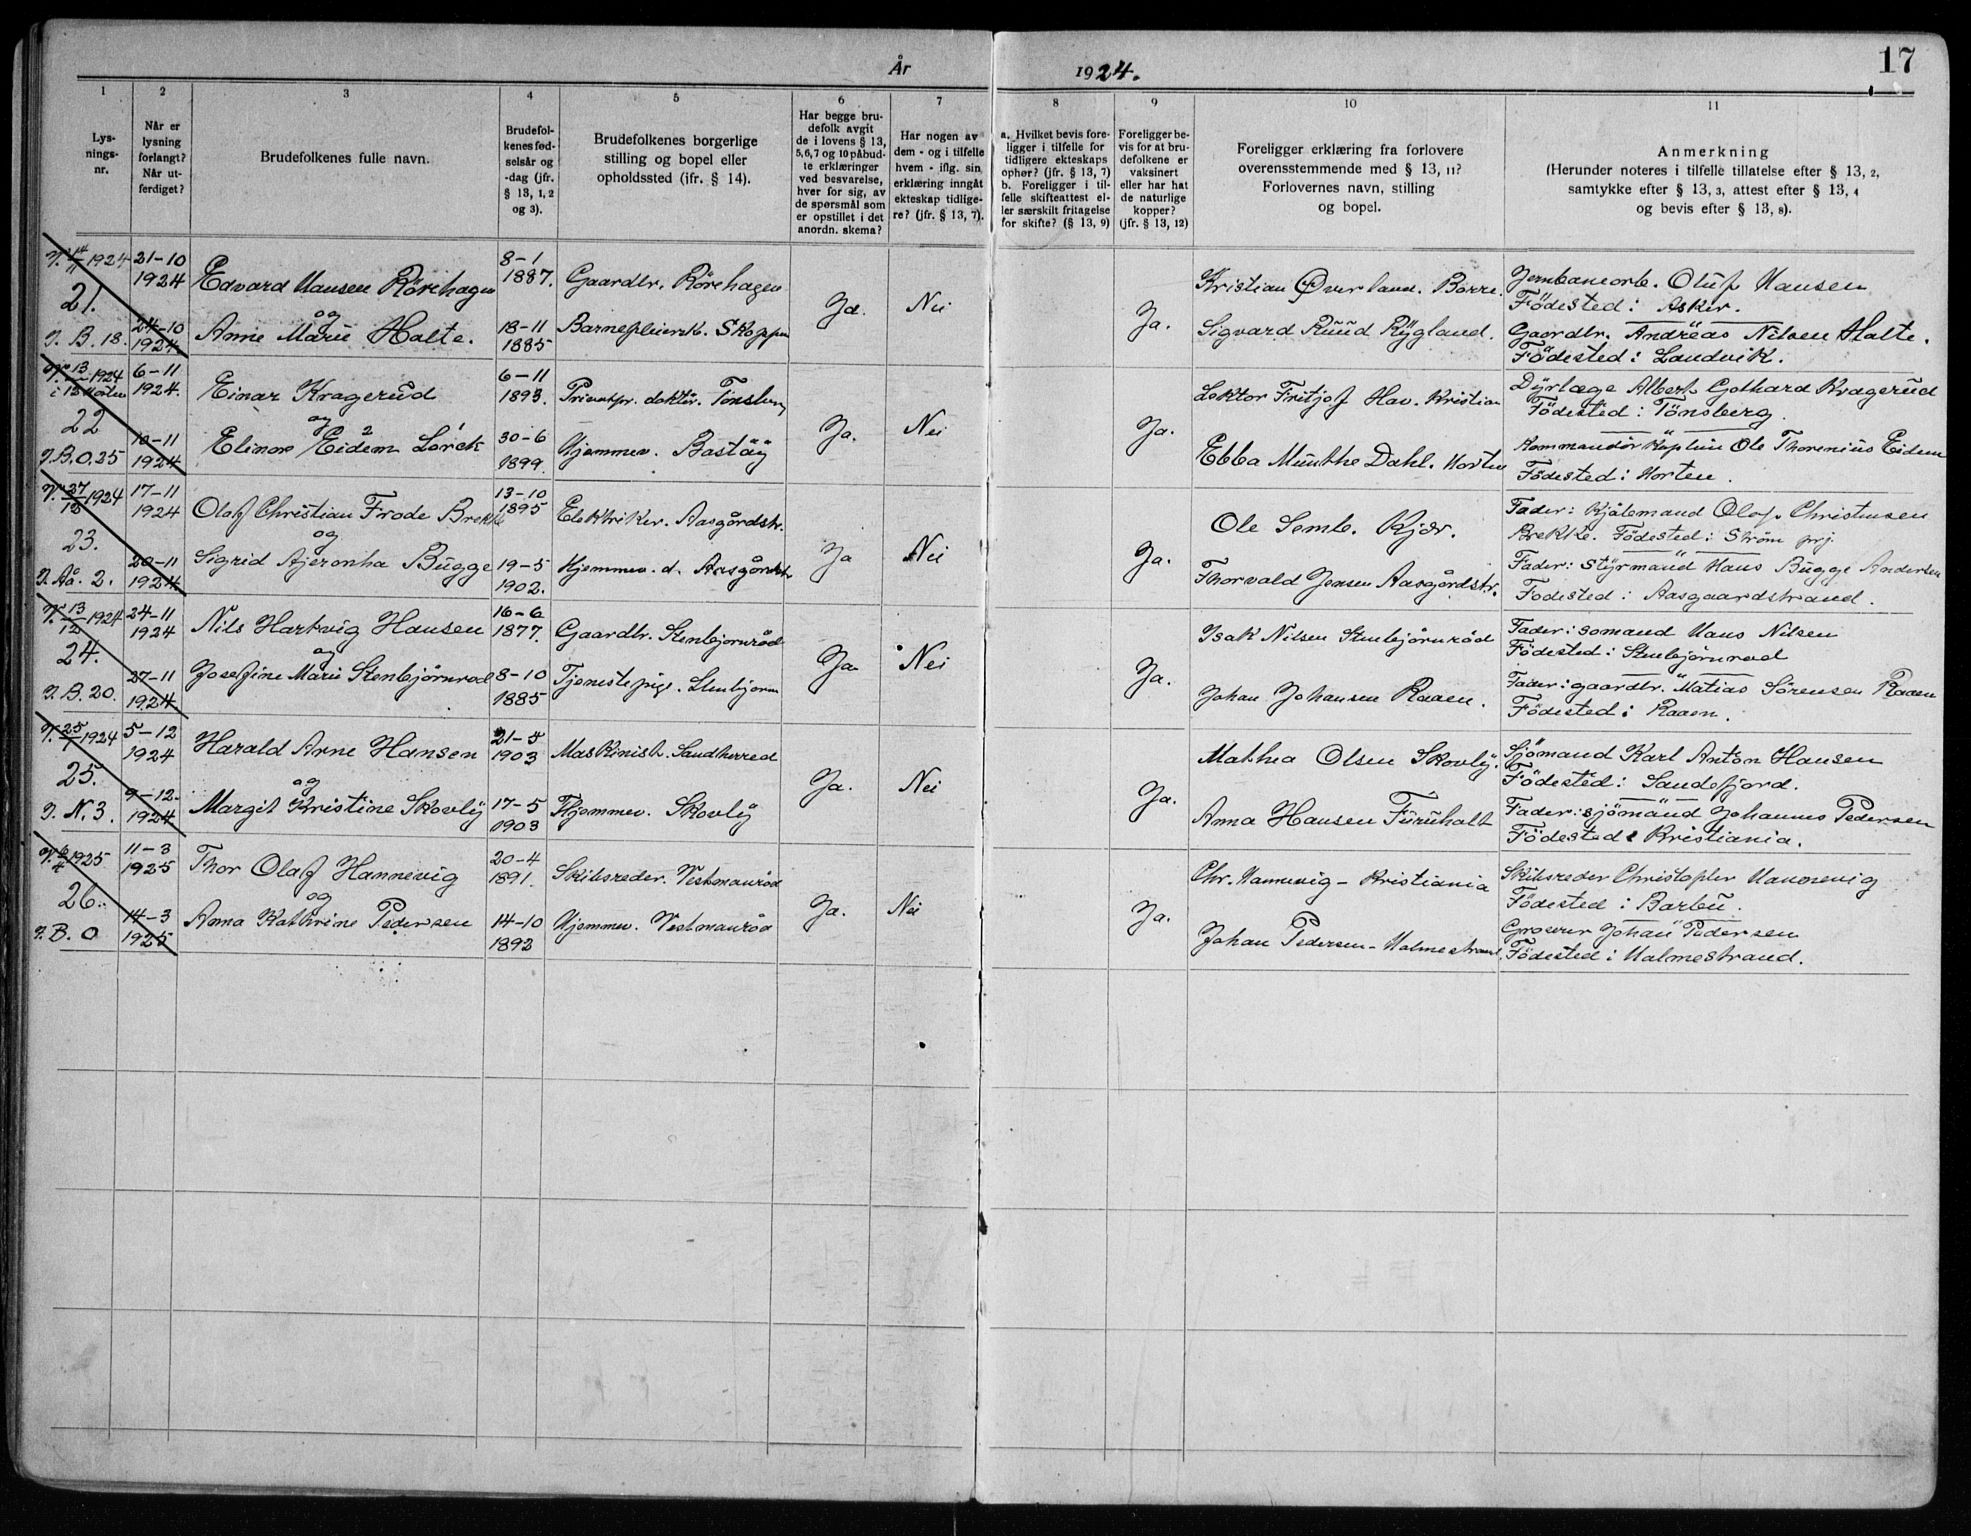 År 1924.
17
1 2 3 4 5 6 7 8 9 10 11
Lys-
nings-
nr.
Når er
lysning
forlangt?
Når ut-
ferdiget?
Brudefolkenes fulle navn.
Brudefol-
kenes fød-
selsår og
-dag (jfr.
§ 13, 1, 2
og 3).
Brudefolkenes borgerlige
stilling og bopel eller
opholdssted (jfr. § 14).
Har begge bru-
defolk avgit
de i lovens § 13,
5,6,7 og 10 påbud-
te erklæringer
ved besvarelse,
hver for sig, av
de spørsmål som
er opstillet i det
anordn. skema?
Har nogen av
dem - og i tilfelle
hvem - iflg. sin
erklæring inngått
ekteskap tidlige-
re? (jfr. § 13, 7).
a. Hvilket bevis fore-
ligger i tilfelle for
tidligere ekteskaps
ophør? (jfr. § 13, 7)
b. Foreligger i til-
felle skifteattest el-
ler særskilt fritagelse
for skifte? (§ 13, 9)
Foreligger be-
vis for at bru-
defolkene er
vaksinert
eller har hat
de naturlige
kopper?
(jfr. § 13, 12)
Foreligger erklæring fra forlovere
overensstemmende med § 13, 11?
Forlovernes navn, stilling
og bopel.
Anmerkning
(Herunder noteres i tilfelle tillatelse efter § 13, 2,
samtykke efter § 13, 3, attest efter § 13, 4
og bevis efter § 13, 8).
V. 14/11 1924
21.
J. B. 18.
21-10
1924
24-10
1924
Edvard Hansen Rörehagen
og
Anne Marie Holte.
8-1
1887.
18-11
1885
Gaardbr. Rörehagen
Barnepleiersk. Skoppum
Ja.
Nei
Ja.
Kristian Øverland. Borre.
Sigvard Ruud Rygland.
Jernbanearb. Oluf Hansen
Födested: Asker.
Gaardbr. Andreas Nilsen Halte.
Födested: Landvik.
1924
i Horten
22
J. B. O. 25
6-11
1924.
10-11
1924
Einar Kragerud
og
Elinor Eidem Lorck
6-11
1893.
30-6
1899.
Privatpr. doktor. Tönsberg
Hjemmev. Bastöy
Ja.
Nei
Ja.
Lektor Fritjof Hav. Kristian
Ebba Munthe Dahl. Horten
Dyrlæge Albert Gothard Kragerud
Födested: Tönsberg.
Kommandörkaptein Ole Thorenius Eidem
Födested: Horten.
V. 27/12 1924
23.
J. Aa. 2.
17-11
1924
20-11
1924
Olaf Christian Frode Brekke
og
Sigrid Ajeronha Bugge
13-10
1895
19-5
1902.
Elektriker. Aasgårdstr.
Hjemmev. d. Aasgårdstr
Ja
Nei
Ja.
Ole Semb. Kjær.
Thorvald Jensen Aasgårdstr.
Fader: Olaf Christensen
Brekke. Födested: Ström prj.
Fader: Styrmand Hans Bugge Andersen
Fodested: Aasgaardstrand.
V. 13/12 1924
24.
J. B. 20.
24-11
1924
27-11
1924
Nils Hartvig Hansen
og
Josefine Marie Stenbjörnrod
16-6
1877.
8-10
1885
Gaardbr. Stenbjornröd
Tjenestepige. Stenbjörnr
Ja
Nei
Ja.
Isak Nilsen Stenbjörnröd
Johan Johansen Raaen.
Fader: somand Hans Nilsen
Födested: Stenbjörnrod
Fader: gaardbr. Matias Sörensen Raaen
Födested: Raaen.
V. 25/1 1924
25.
J. N. 3.
5-12
1924
9-12.
1924.
Harald Anne Hansen
og
Margit Kristine Skovly
21-5
1903
17-5
1903
Maskinist. Sandherred
Hjemmev. Skovly
Ja.
Nei
Ja.
Mathea Olsen Skovly.
Anna Hansen Furuholt
Sjömand Karl Anton Hansen
Födested: Sandefjord.
Fader: sjömand Johannes Pedersen
Födested: Kristiania.
1925
26.
J. B. O
11-3
1925
14-3
1925
Thor Olaf Hannevig
og
Anna Kathrine Pedersen
20-4
1891.
14-10
1892
Skibsreder. Vestmanröd
Hjemmev. Vestmanröd
Ja.
Nei
Ja.
Chr. Hannevig - Kristiania
Johan Pedersen - Holmestrand.
Skibsreder Christopher Hannevig
Födested: Barbu.
Groserer Johan Pedersen
Födested: Holmestrand.